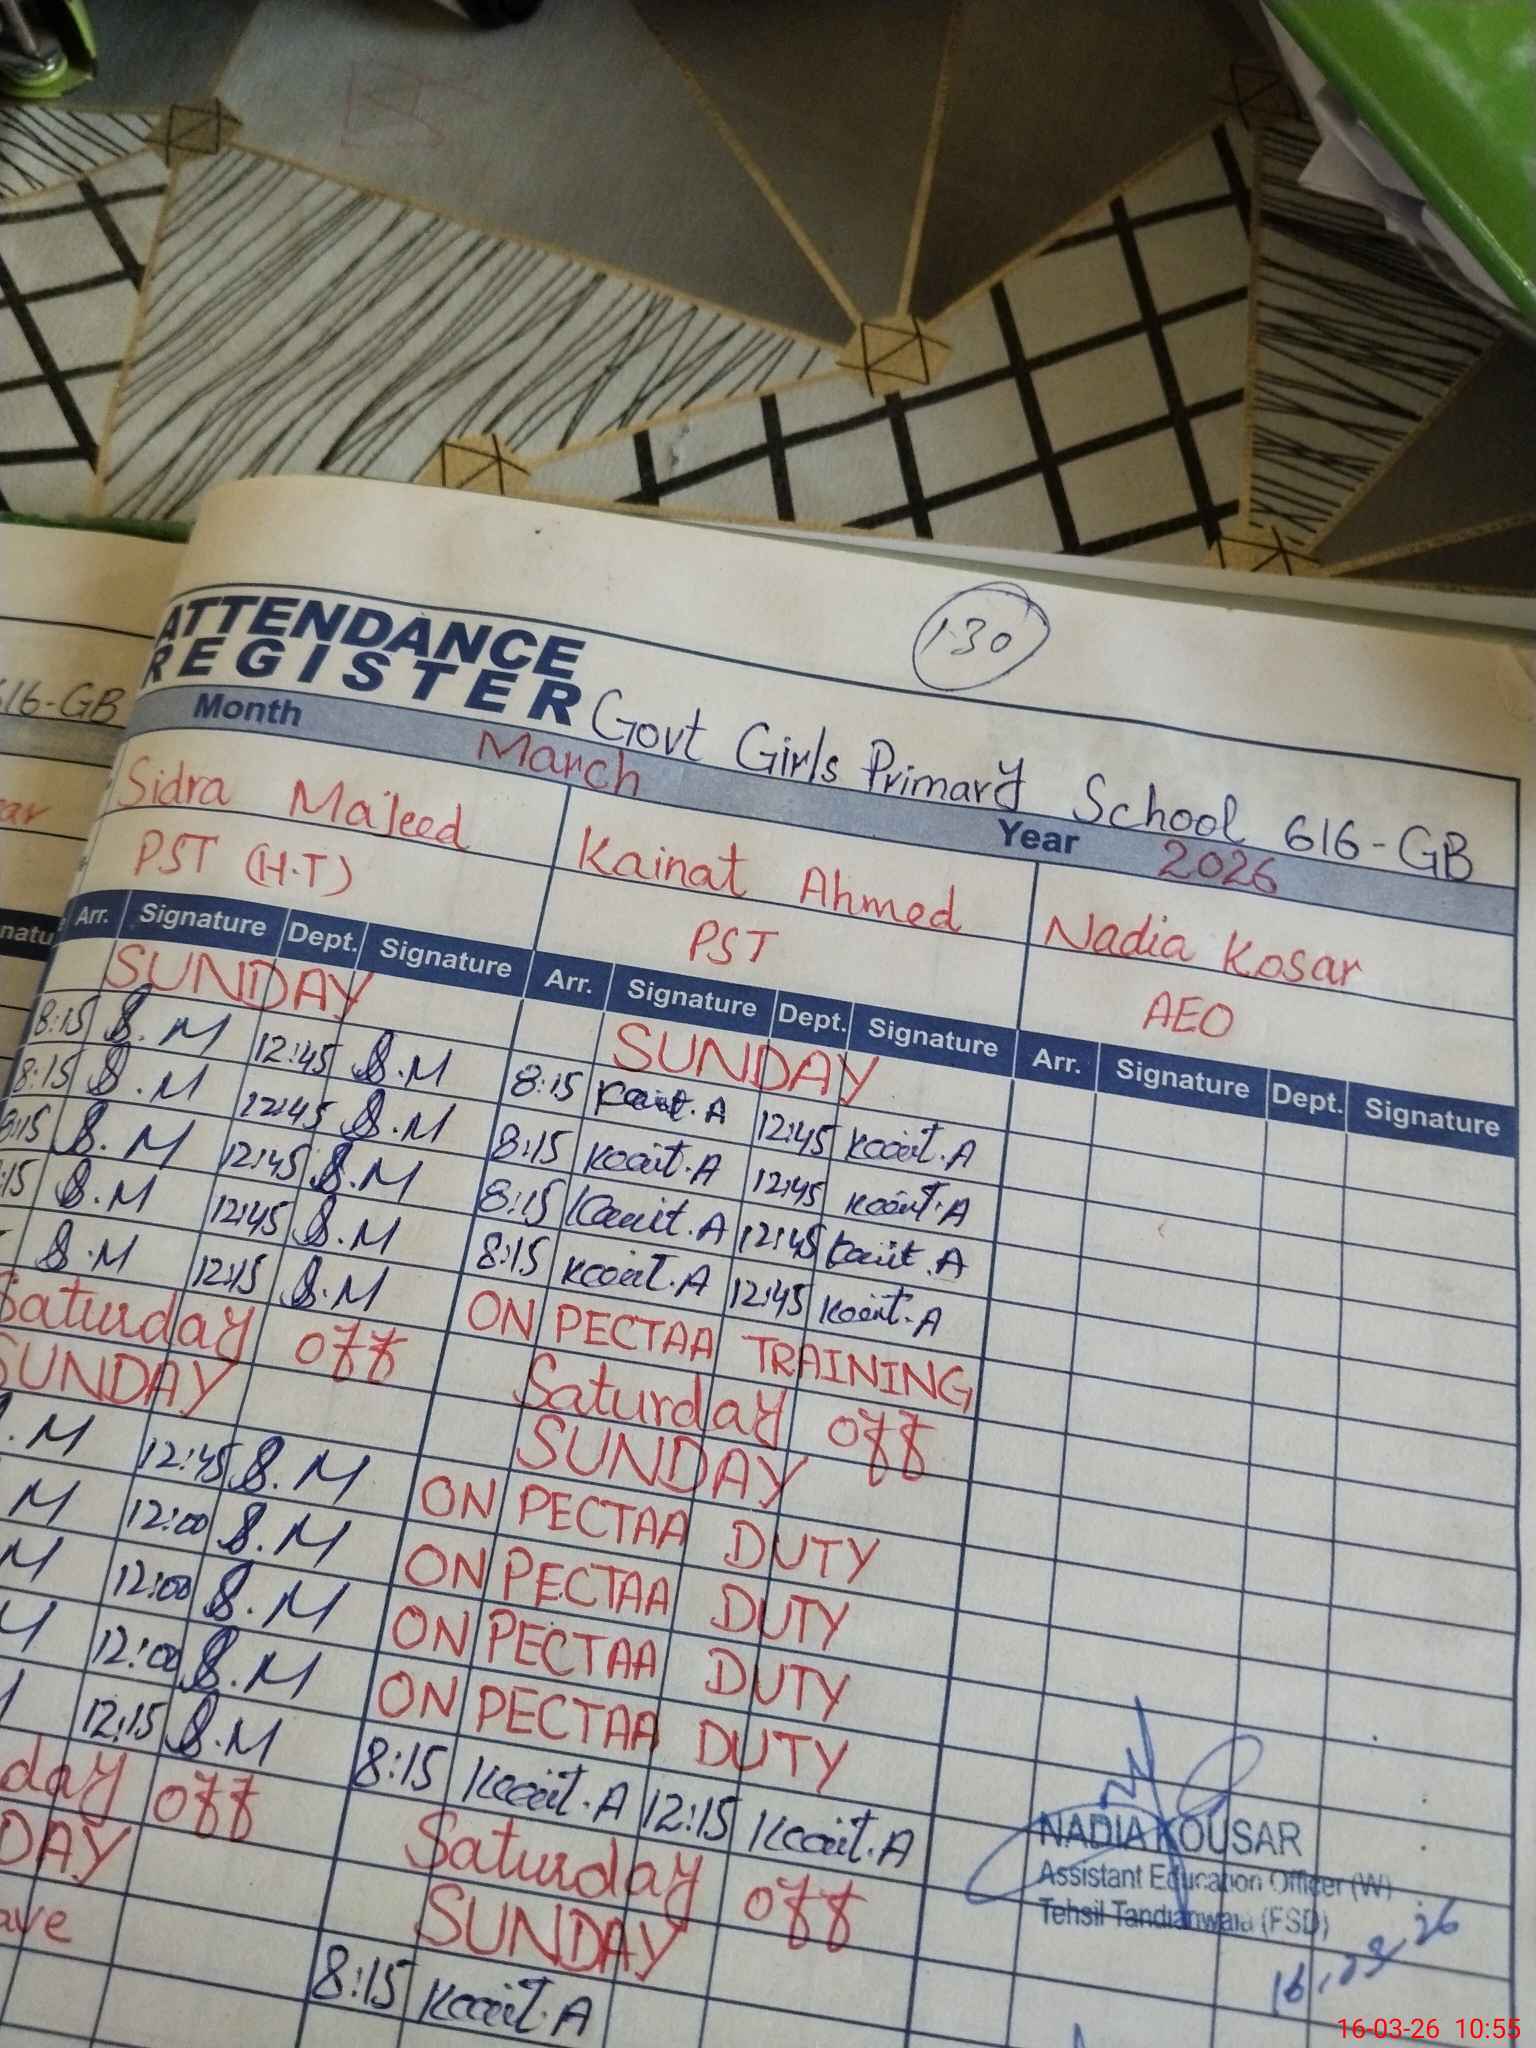 1-30
ATTENDANCE
REGISTER Govt Girls Primary School 616-GB
616-GB
Month March Year 2026
Sidra Majeed Kainat Ahmed Nadia Kosar
PST (H.T) PST AEO
Arr. Signature Dept. Signature Arr. Signature Dept. Signature Arr. Signature Dept. Signature
SUNDAY SUNDAY
8:15 S.M 12:45 S.M 8:15 Kainat.A 12:45 Kainat.A
8:15 S.M 12:45 S.M 8:15 Kainat.A 12:45 Kainat.A
8:15 S.M 12:45 S.M 8:15 Kainat.A 12:45 Kainat.A
:15 S.M 12:45 S.M 8:15 Kainat.A 12:45 Kainat.A
S.M 12:15 S.M ON PECTAA TRAINING
Saturday off Saturday off
SUNDAY SUNDAY
.M 12:45 S.M ON PECTAA DUTY
M 12:00 S.M ON PECTAA DUTY
M 12:00 S.M ON PECTAA DUTY
M 12:00 S.M ON PECTAA DUTY
12:15 S.M 8:15 Kainat.A 12:15 Kainat.A
day off Saturday off
DAY SUNDAY
ave 8:15 Kainat.A
NADIA KOUSAR
Assistant Education Officer (W)
Tehsil Tandlianwala (FSD)
16.03.26
16-03-26 10:55